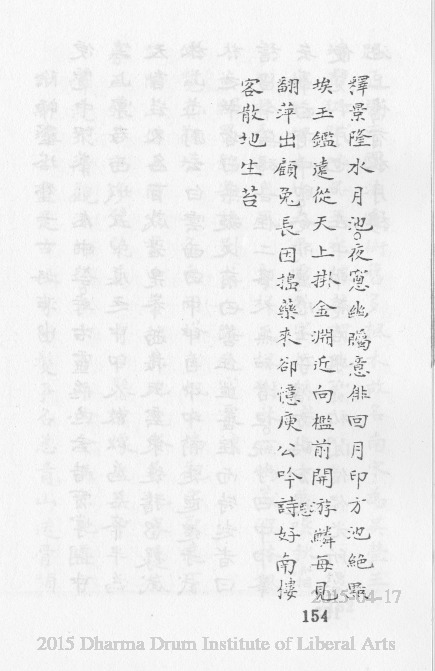 釋景隆水月池。夜窻幽矚意徘回月印方池絕點
埃玉鑑遠從天上掛金淵近向檻前開游鱗每見
翻萍出顧兔長因搗藥來卻憶庾公吟詩好南樓
客散地生苔
2015-04-17
154
2015 Dharma Drum Institute of Liberal Arts